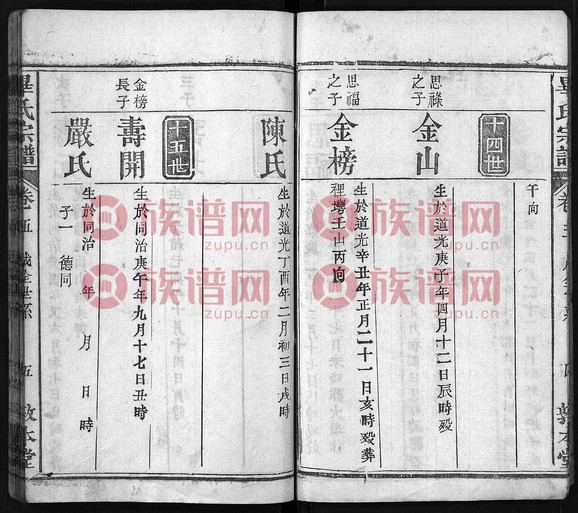 午向
十四世
思祿之子
金山
生於道光庚子年四月十二日辰時歿
思福之子
金榜
生於道光辛丑年正月二十一日亥時歿葬
裡塆壬山丙向
陳氏
生於道光丁酉年二月初三日戌時
十五世
金榜長子
壽開
生於同治庚午年九月十七日丑時
嚴氏
生於同治 年 月 日時
子一 德同
畢氏宗譜
卷五
世系
五
敦本堂
族谱网
zupu.cn
族谱网
zupu.cn
族谱网
zupu.cn
族谱网
zupu.cn